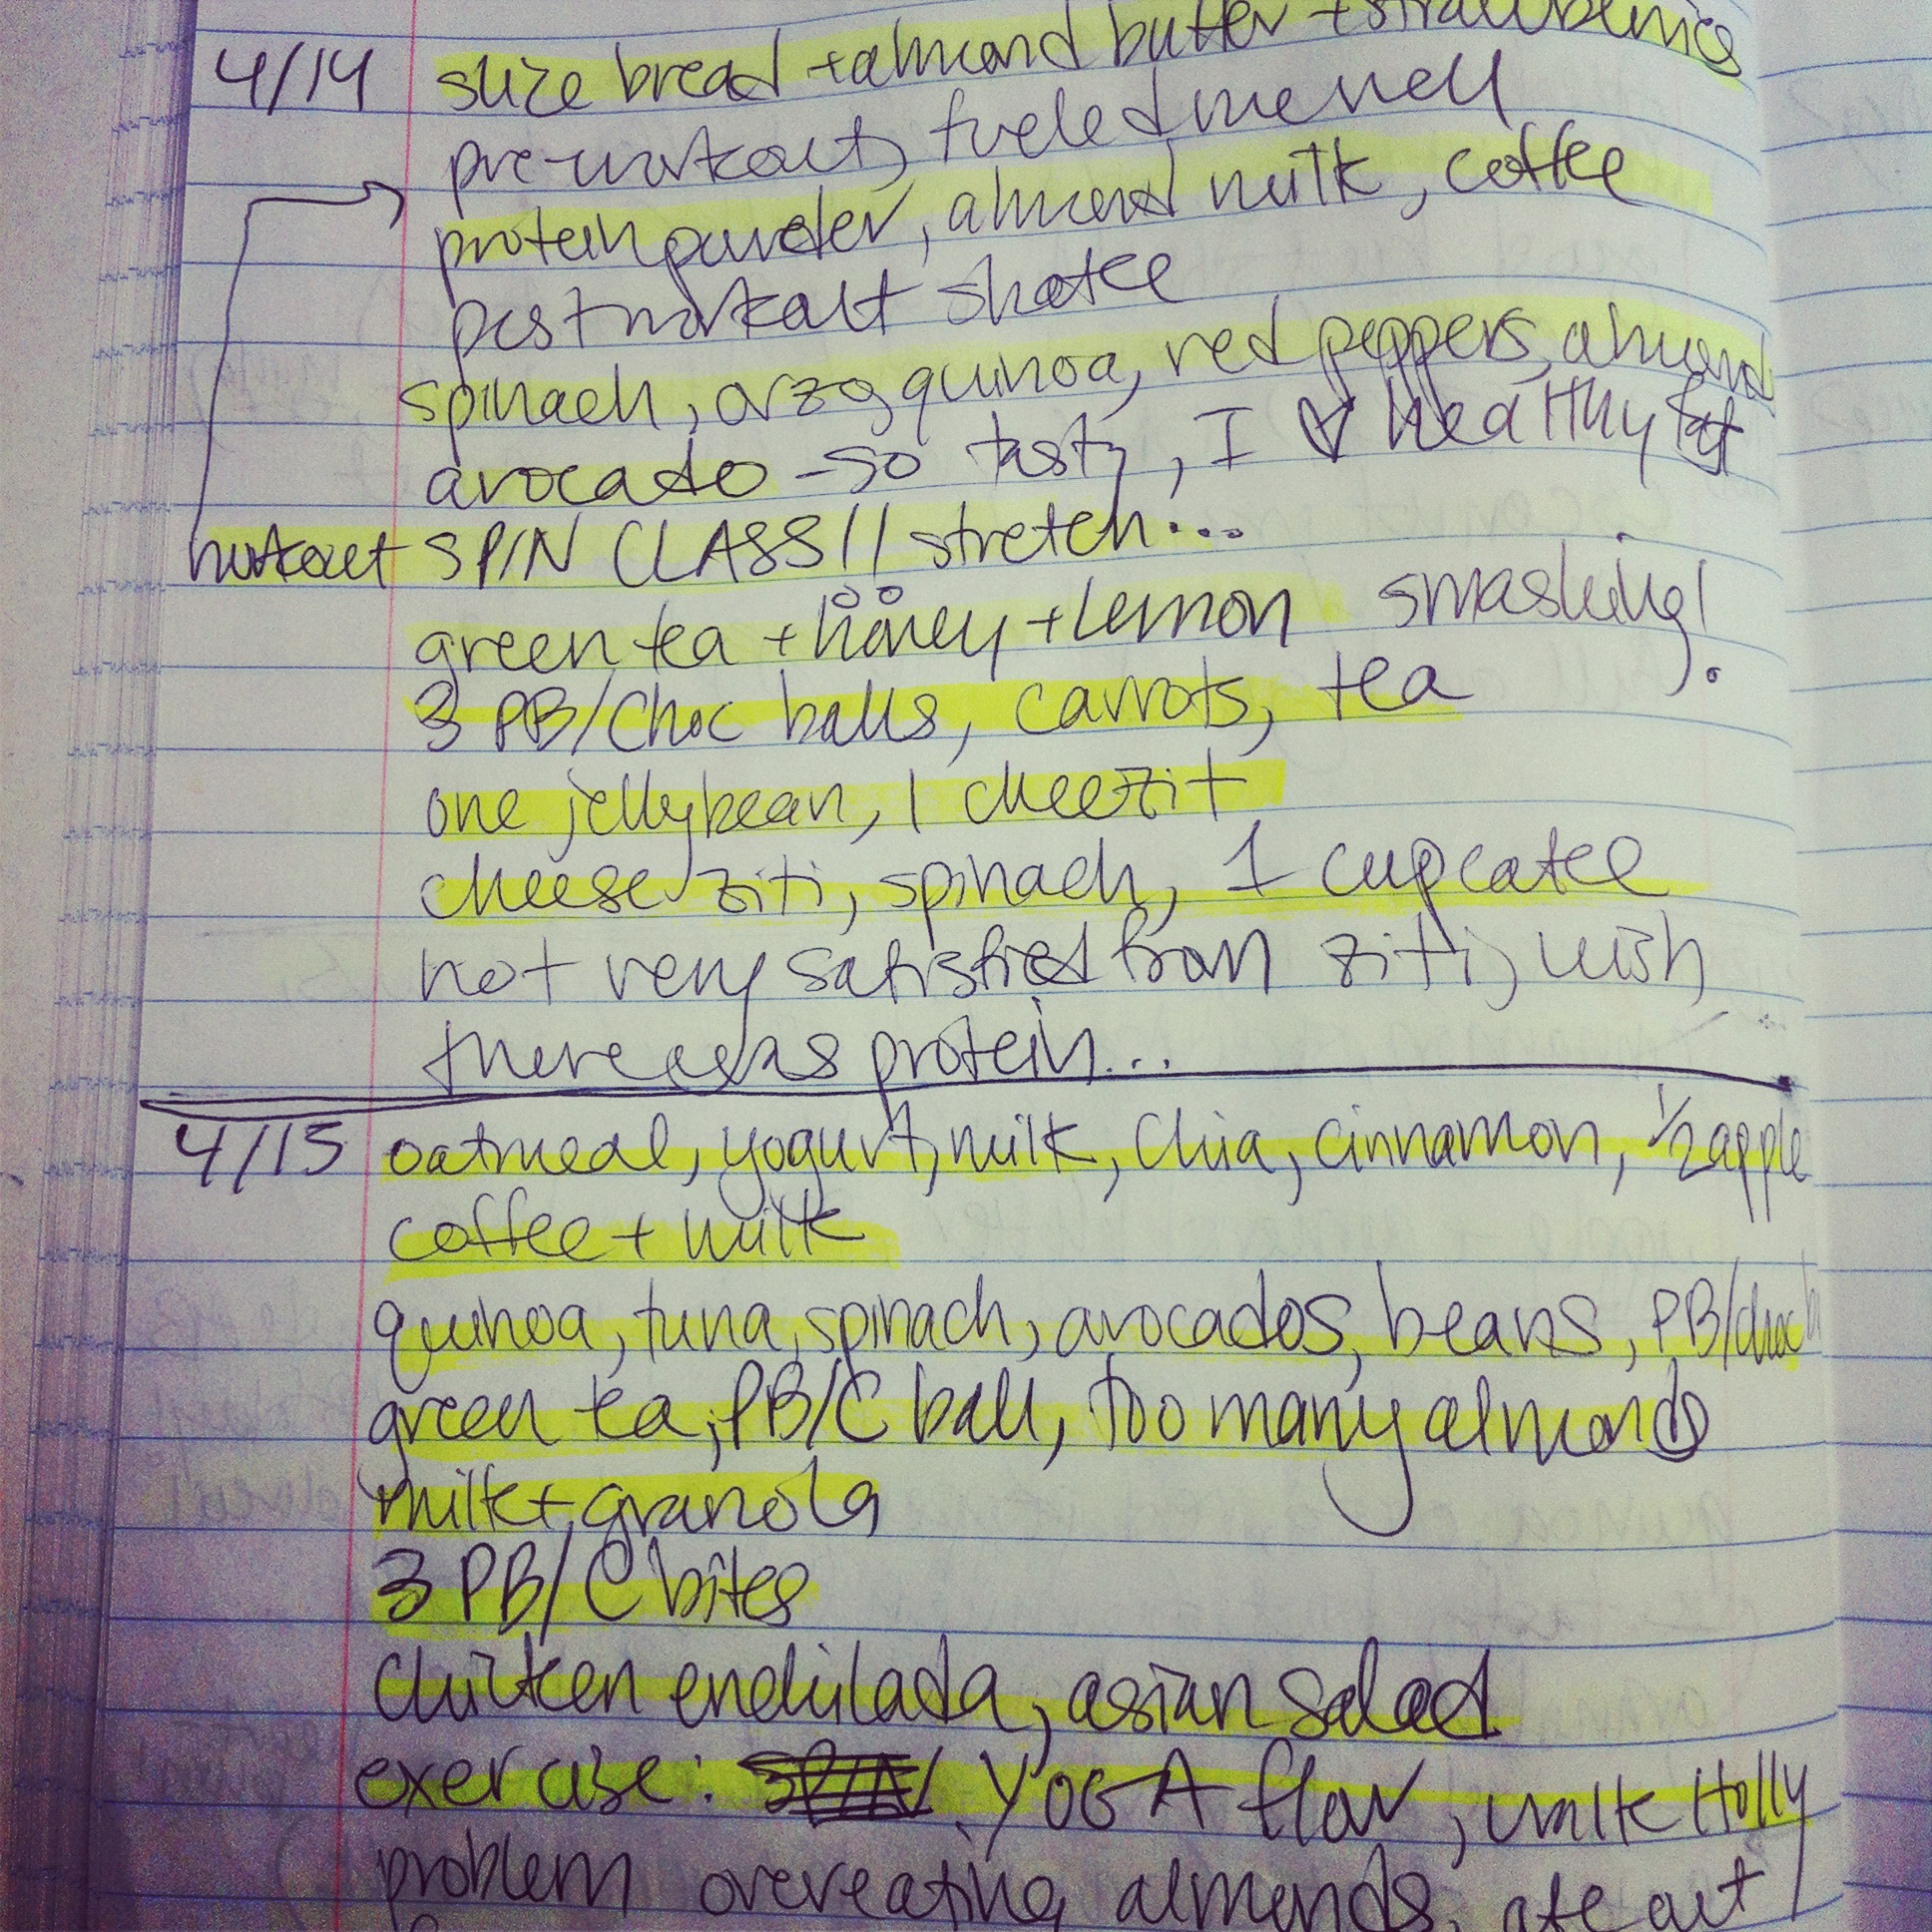 4/14 slice bread + almond butter + strawberries
pre-workout, fueled me well
protein powder, almond milk, coffee
postworkout shake
spinach, orzo, quinoa, red peppers, almond
avocado - so tasty, I ♡ healthy fat
workout SPIN CLASS // stretch...
green tea + honey + lemon smashing!
3 PB/Choc balls, carrots, tea
one jellybean, 1 cheezit
cheese ziti, spinach, 1 cupcake
not very satisfied from ziti, wish
there was protein...
4/15 oatmeal, yogurt, milk, chia, cinnamon, 1/2 apple
coffee + milk
quinoa, tuna, spinach, avocados, beans, PB/choc
green tea, PB/C ball, too many almonds
milk + granola
3 PB/C bites
chicken enchilada, asian salad
exercise: SPIN YOGA flow, walk Holly
problem overeating almonds, ate out